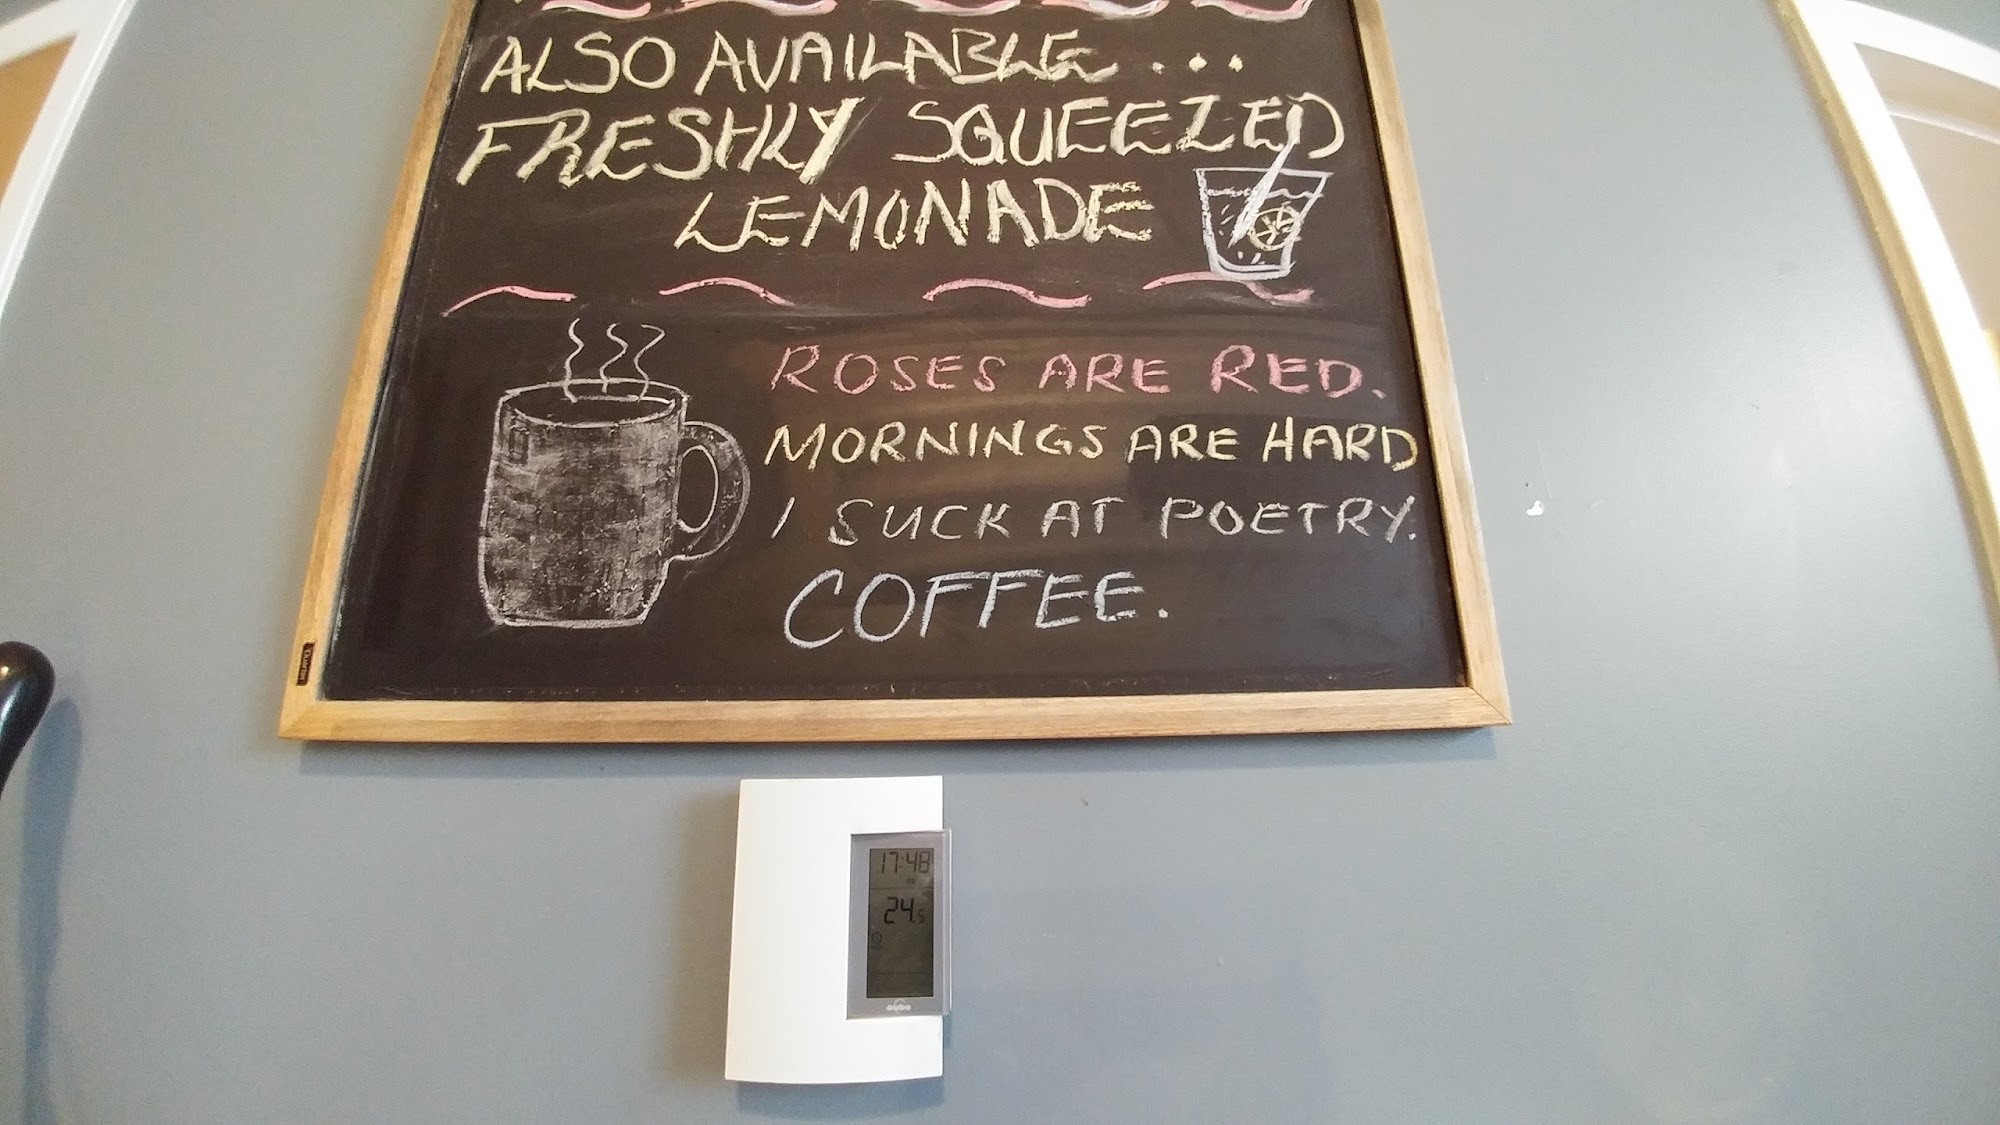 ALSO AVAILABLE...
FRESHLY SQUEEZED
LEMONADE
ROSES ARE RED.
MORNINGS ARE HARD
I SUCK AT POETRY.
COFFEE.
Quartet
17:48
24.5
aube